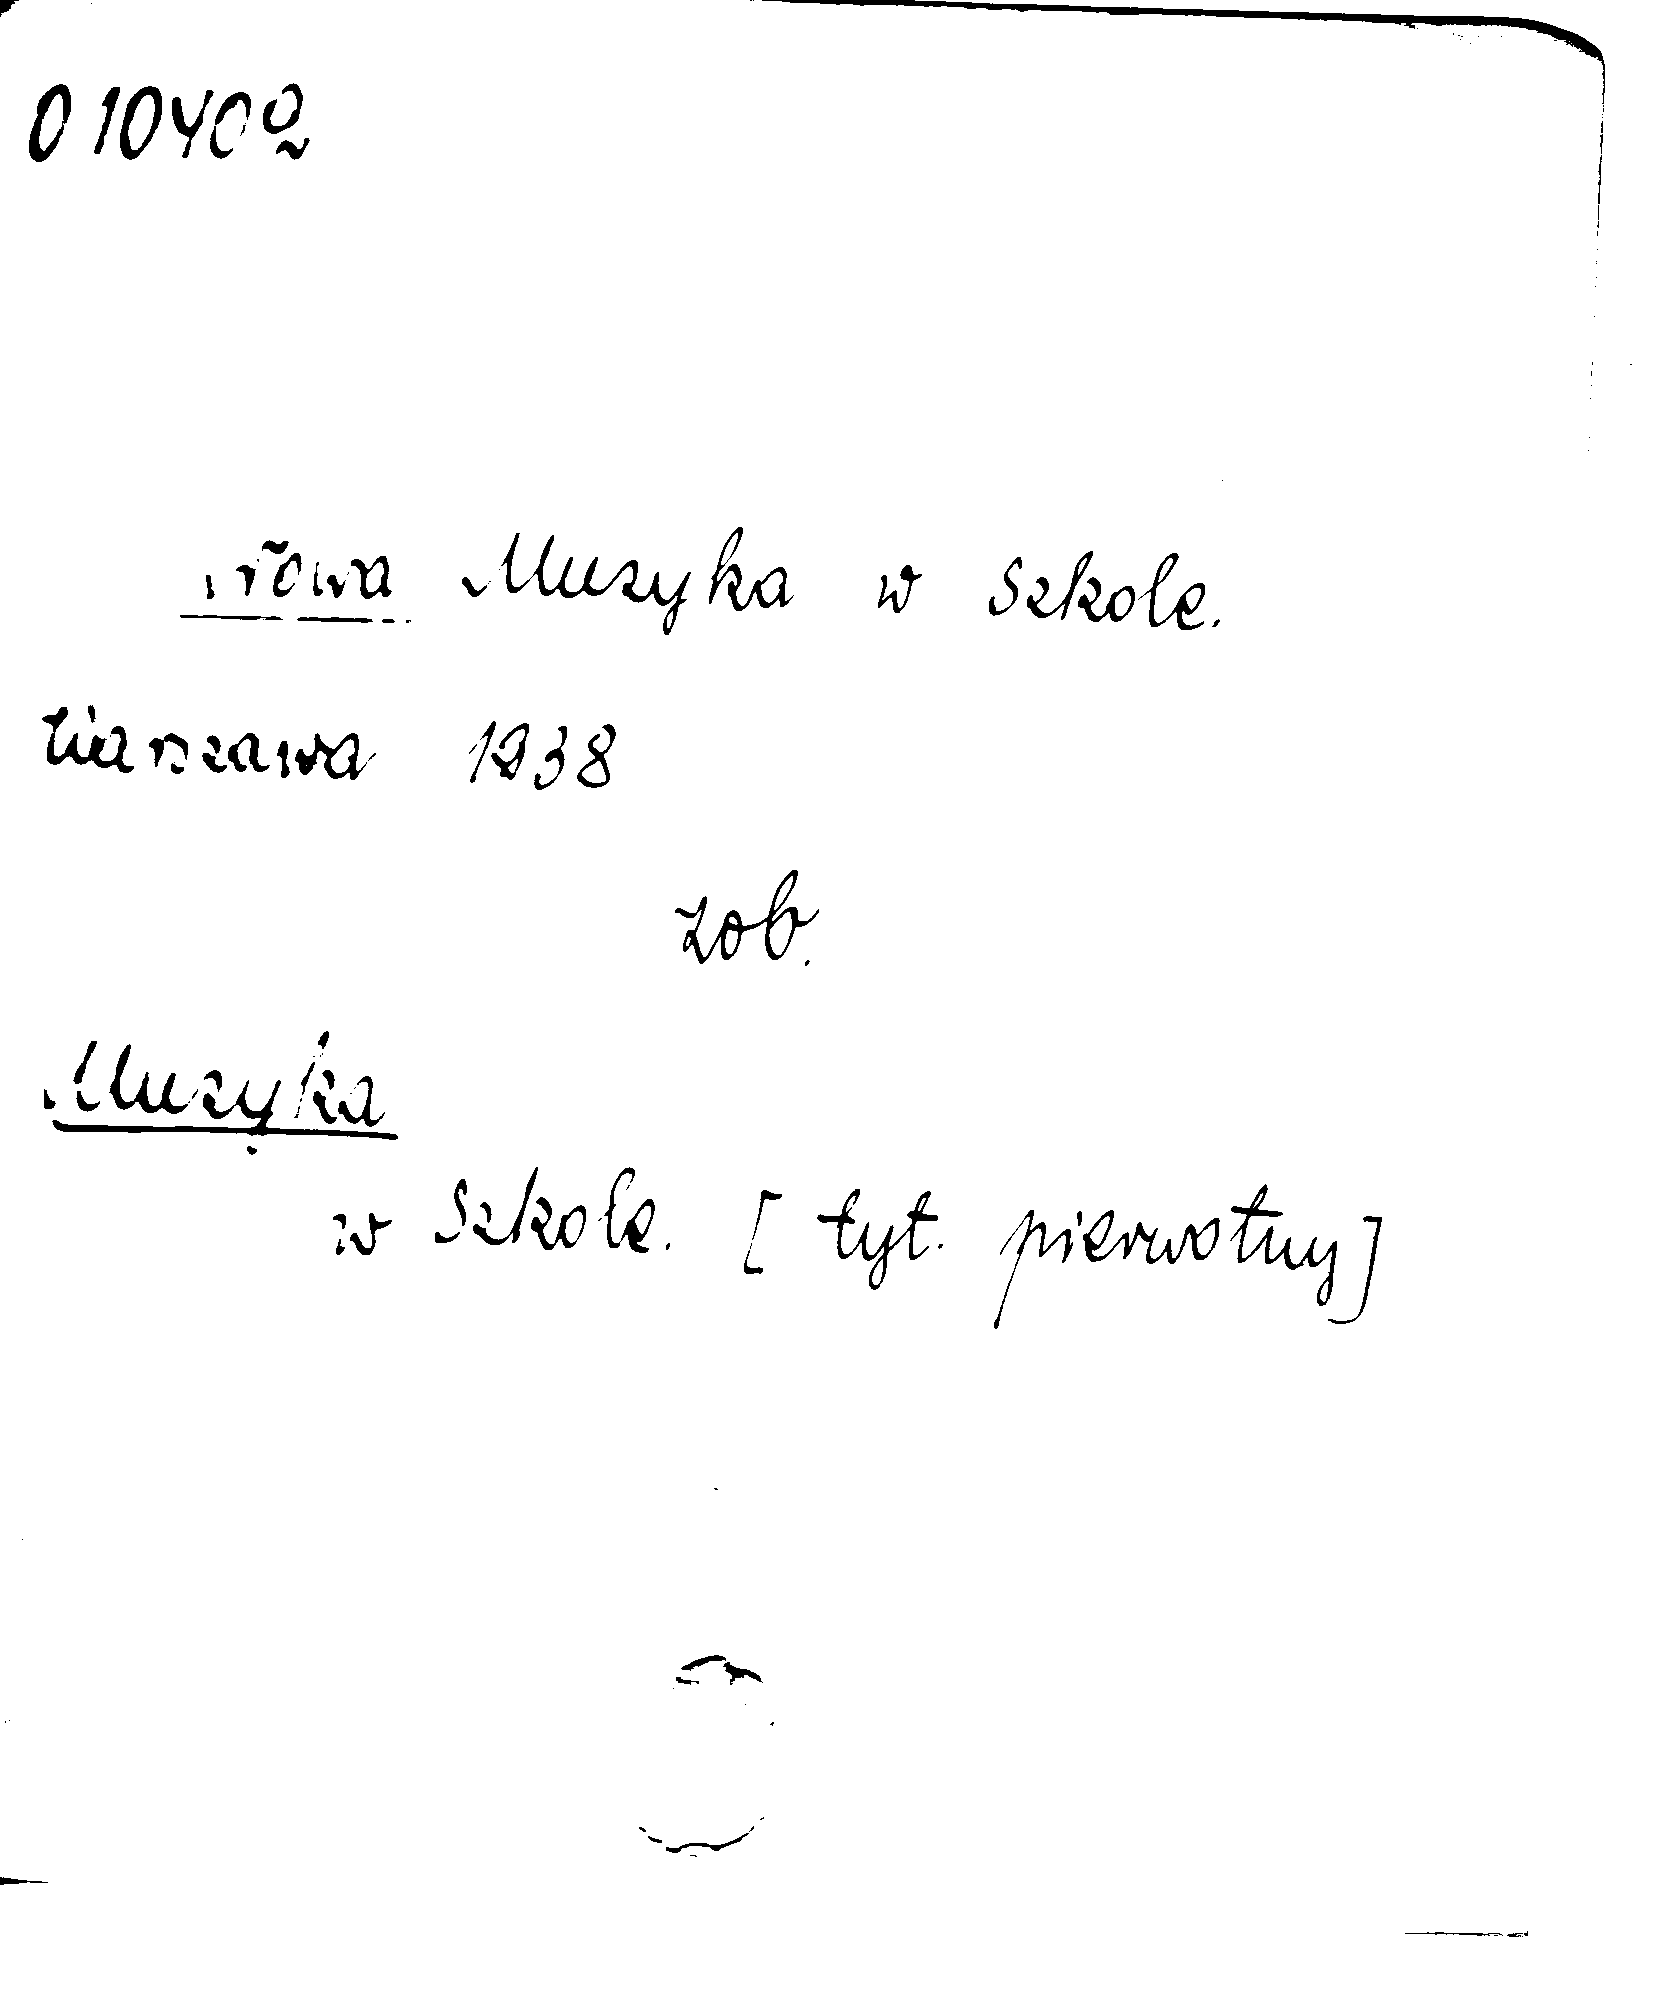 010402
Nowa Muzyka w Szkole.
Warszawa 1938
zob.
Muzyka
w Szkole. [tyt. pierwotny]